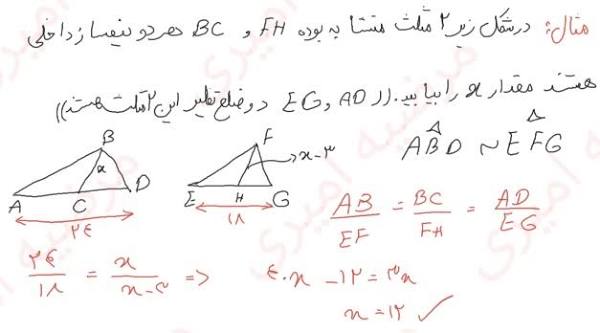 مثال: در شکل زیر ۲ مثلث متشابه بوده FH و BC هر دو نیمساز داخلی
هستند مقدار x را بیابید. (( AD و EG دو ضلع نظیر این ۲ مثلث هستند))
B
x
A
C
D
۲۴
F
x-۳
E
H
G
۱۸
ABD ~ EFG
AB/EF = BC/FH = AD/EG
۲۴/۱۸ = x/x-۳ => ۴x - ۱۲ = ۳x
x = ۱۲ ✓